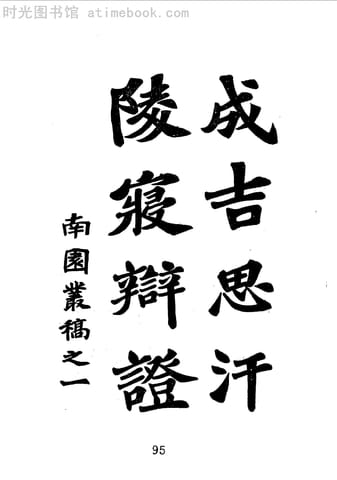 时光图书馆 - atimebook.com
成吉思汗
陵寢辯證
南園叢稿之一
95